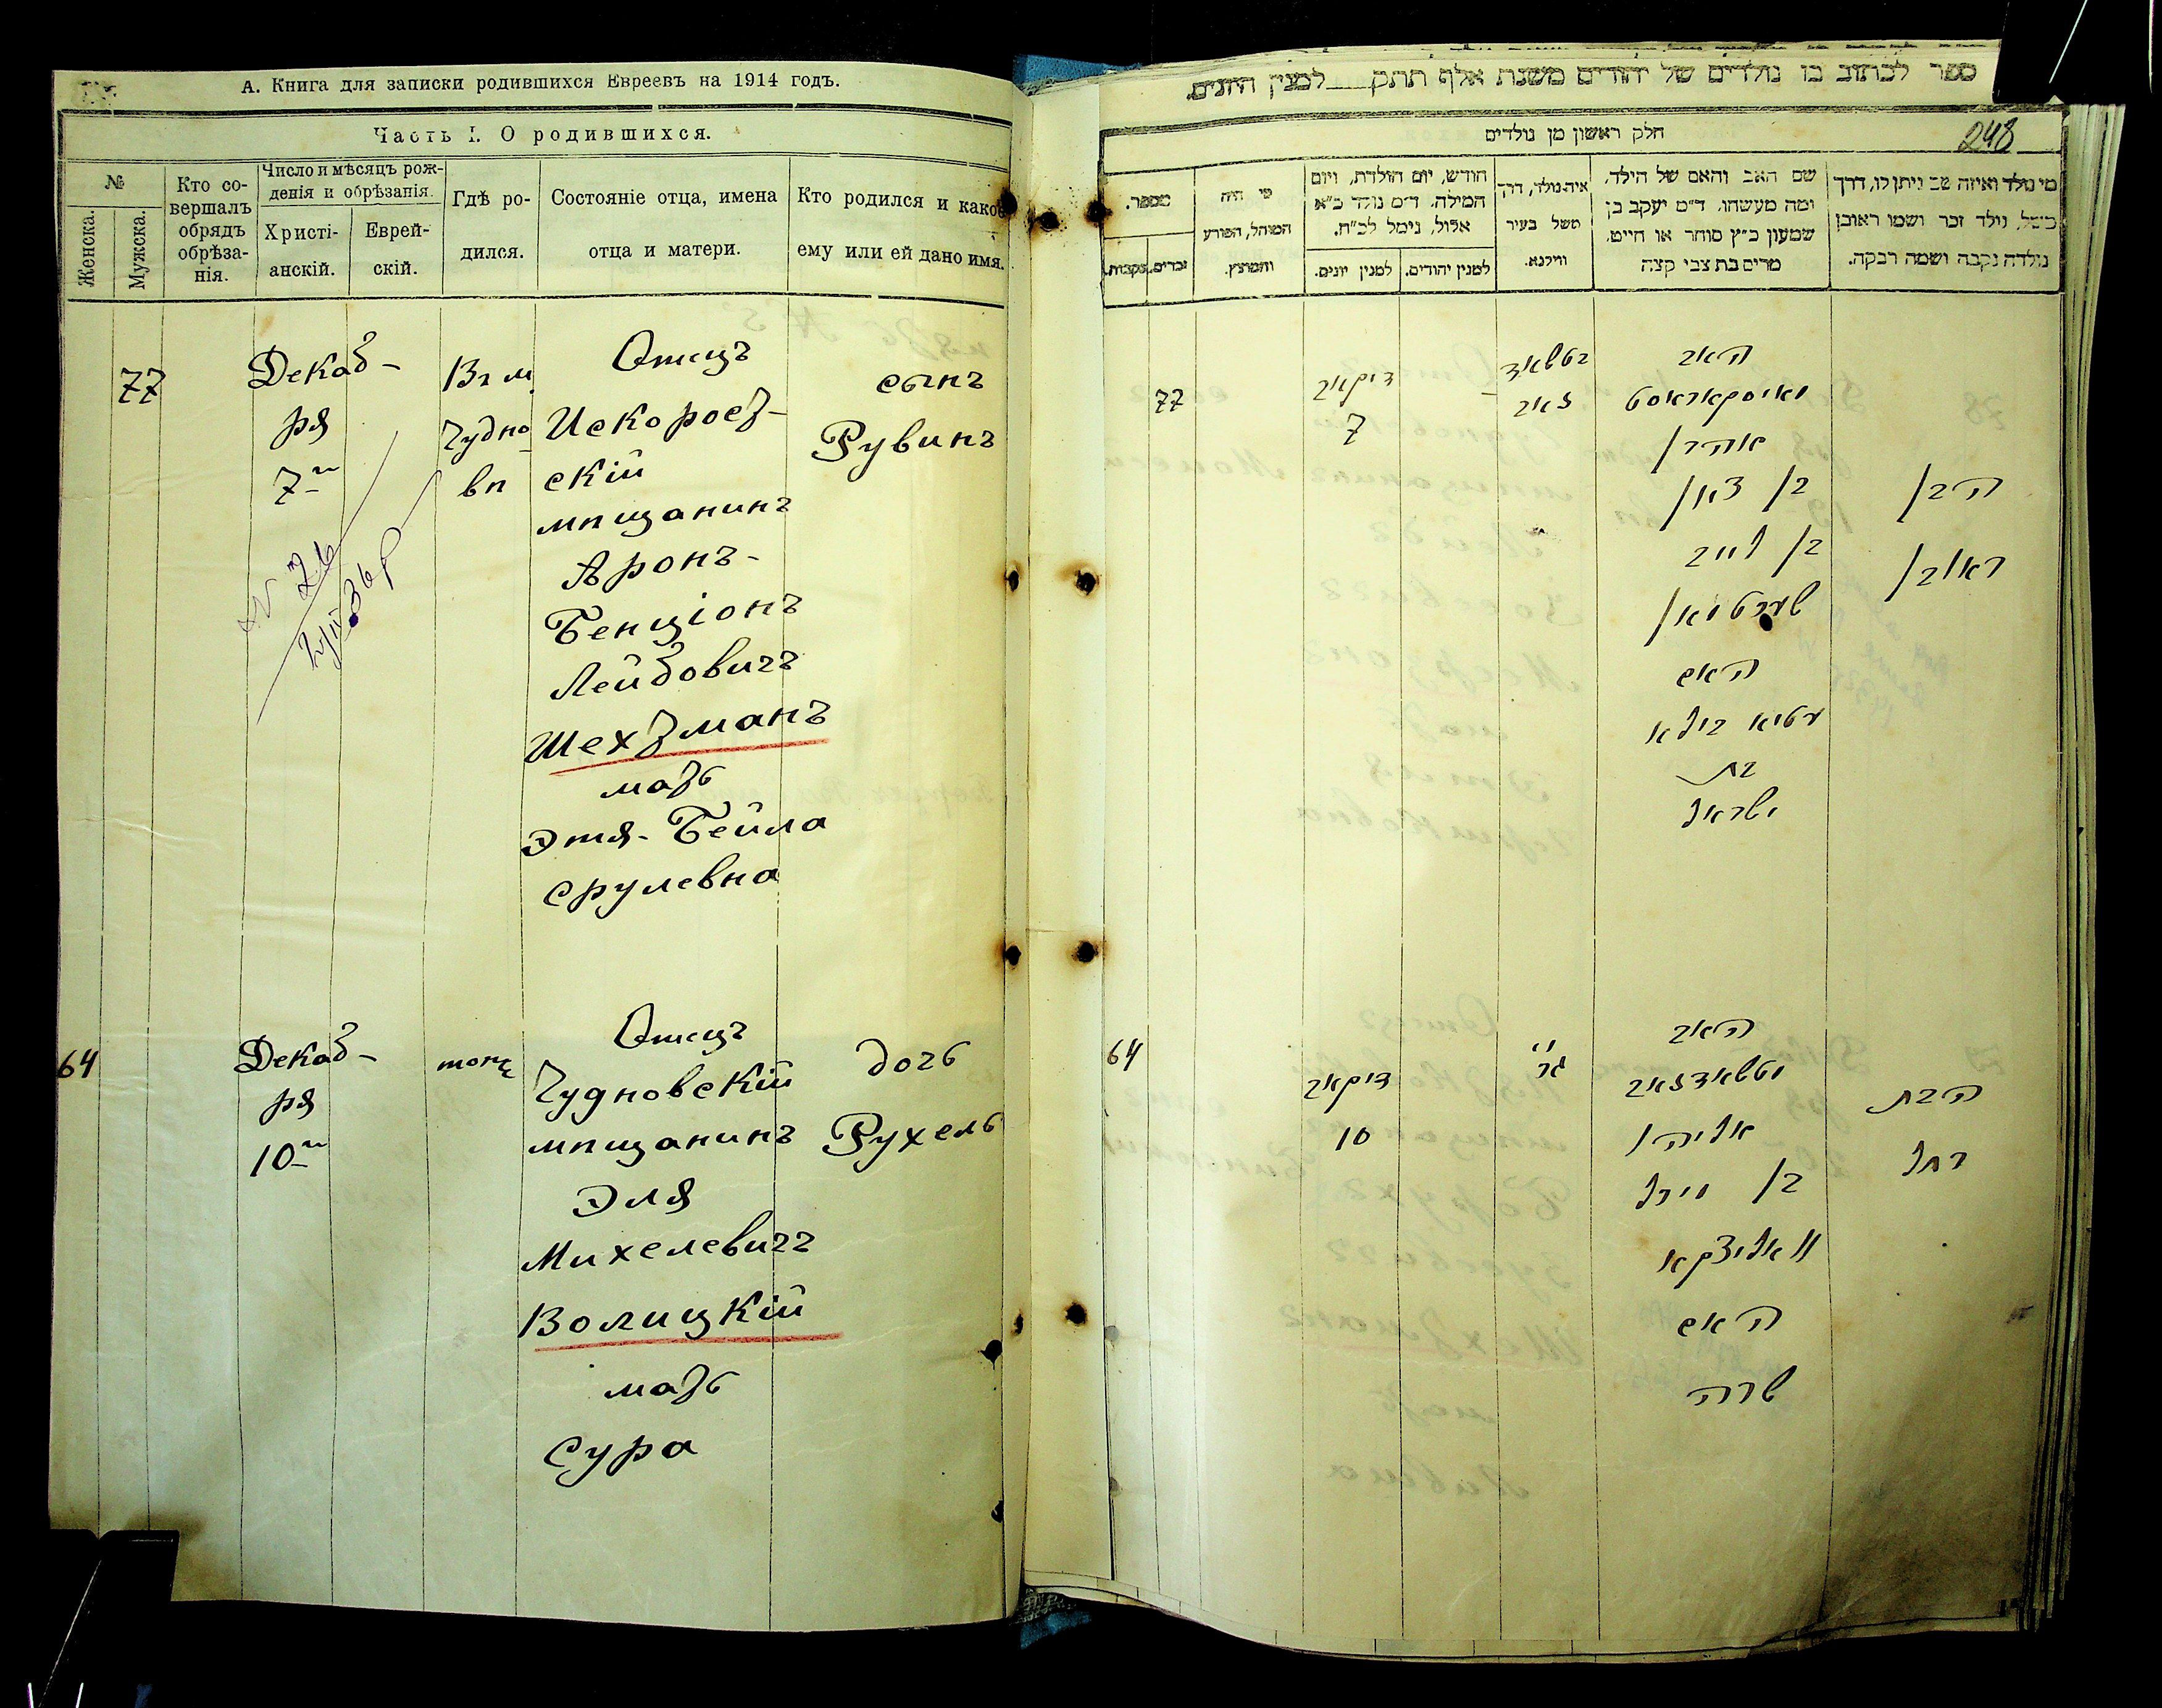 А. Книга для записки родившихся Евреевъ на 1914 годъ.
Часть I. О родившихся.
№
Женска.
Мужска.
Кто со-
вершалъ
обрядъ
обрѣза-
нія.
Число и мѣсяцъ рож-
денія и обрѣзанія.
Христі-
анскій.
Еврей-
скій.
Гдѣ ро-
дился.
Состояніе отца, имена
отца и матери.
Кто родился и какое
ему или ей дано имя.
77
Декаб-
ря
7го
Въ м.
Чудно
вѣ
Отецъ
Искорост-
скій
мѣщанинъ
Аронъ-
Бенціонъ
Лейбовичъ
Шехтманъ
мать
Этя-Бейла
Срулевна
сынъ
Рувинъ
64
Декаб-
ря
10го
тоже
Отецъ
Чудновскій
мѣщанинъ
Эля
Михелевичъ
Волицкій
мать
Сура
дочь
Рухель
ספר לכתוב בו נולדים של יהודים משנת אלף תתק למנין היונים.
חלק ראשון מן נולדים
248
מספר.
זכרים.
נקבות.
מי היה
המוהל, הפורע
והמוצץ.
חודש, יום הולדת, ויום
המילה. ד״מ נולד כ״א
אלול, נימל לכ״ח.
למנין יונים.
למנין יהודים.
איה נולד, דרך
משל בעיר
ווילנא.
שם האב והאם של הילד,
ומה מעשהו. ד״מ יעקב בן
שמעון כ״ץ סוחר או חייט,
מרים בת צבי קצה
מי נולד ואיזה שם ניתן לו, דרך
משל, נולד זכר ושמו ראובן
נולדה נקבה ושמה רבקה.
77
דיקאב
7
האב
אהרן
בן ציון
בן לייב
שעכטמאן
האם
עטיא ביילא
בת
ישראל
הבן
ראובן
64
דיקאב
10
האב
אליהו
בן מיכל
וואליצקא
האם
שרה
הבת
רחל